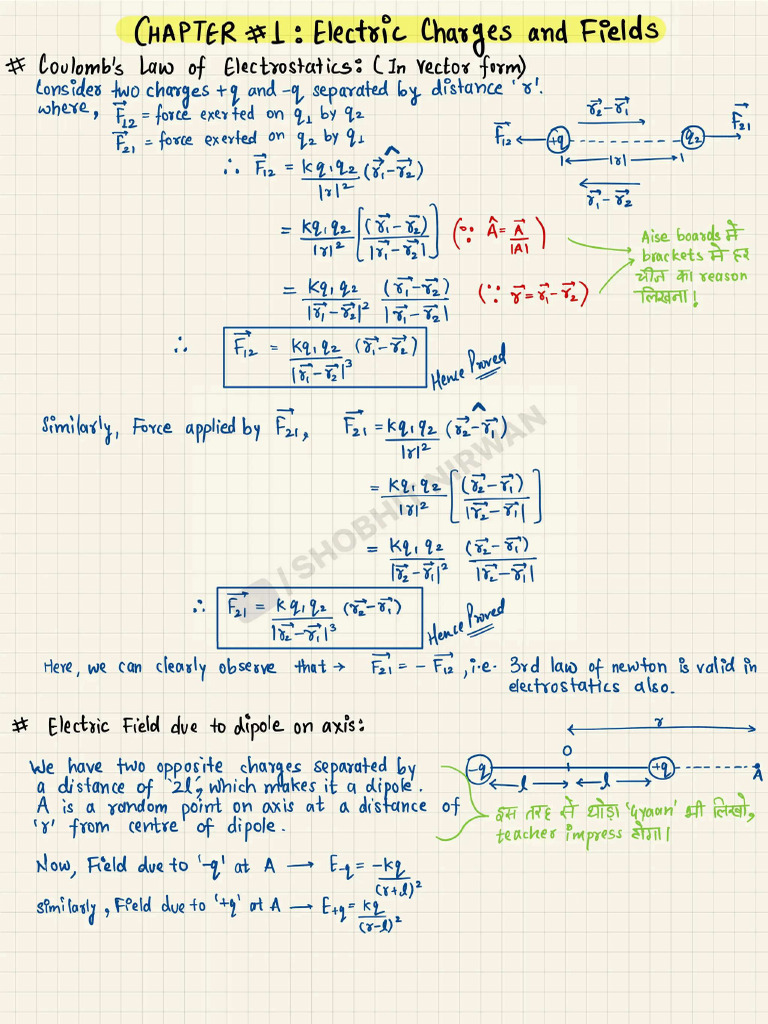 CHAPTER #1: Electric Charges and Fields
# Coulomb's Law of Electrostatics: (In vector form)
Consider two charges +q and -q separated by distance 'r'.
where, F⃗₁₂ = force exerted on q₁ by q₂
F⃗₂₁ = force exerted on q₂ by q₁
r⃗₂-r⃗₁
F⃗₁₂ +q q₂ F⃗₂₁
|r|
r⃗₁-r⃗₂
∴ F⃗₁₂ = kq₁q₂/|r|² (r⃗₁-r⃗₂)^
= kq₁q₂/|r|² [(r⃗₁-r⃗₂)/|r⃗₁-r⃗₂|] (∵ Â = A⃗/|A|)
= kq₁q₂/|r⃗₁-r⃗₂|² (r⃗₁-r⃗₂)/|r⃗₁-r⃗₂| (∵ r⃗=r⃗₁-r⃗₂)
Aise boards में
brackets में हर
चीज का reason
लिखना!
∴ F⃗₁₂ = kq₁q₂/|r⃗₁-r⃗₂|³ (r⃗₁-r⃗₂)
Hence Proved
Similarly, Force applied by F⃗₂₁, F⃗₂₁ = kq₁q₂/|r|² (r⃗₂-r⃗₁)^
= kq₁q₂/|r|² [(r⃗₂-r⃗₁)/|r⃗₂-r⃗₁|]
= kq₁q₂/|r⃗₂-r⃗₁|² (r⃗₂-r⃗₁)/|r⃗₂-r⃗₁|
∴ F⃗₂₁ = kq₁q₂/|r⃗₂-r⃗₁|³ (r⃗₂-r⃗₁)
Hence Proved
/SHOBHIT NIRWAN
Here, we can clearly observe that → F⃗₂₁ = -F⃗₁₂, i.e. 3rd law of newton is valid in
electrostatics also.
# Electric Field due to dipole on axis:
r
O
-q +q A
l l
We have two opposite charges separated by
a distance of '2l', which makes it a dipole.
A is a random point on axis at a distance of
'r' from centre of dipole.
इस तरह से थोड़ा 'Gyaan' भी लिखो,
teacher impress होगा।
Now, Field due to '-q' at A → E-q = -kq/(r+l)²
similarly, Field due to '+q' at A → E+q = kq/(r-l)²